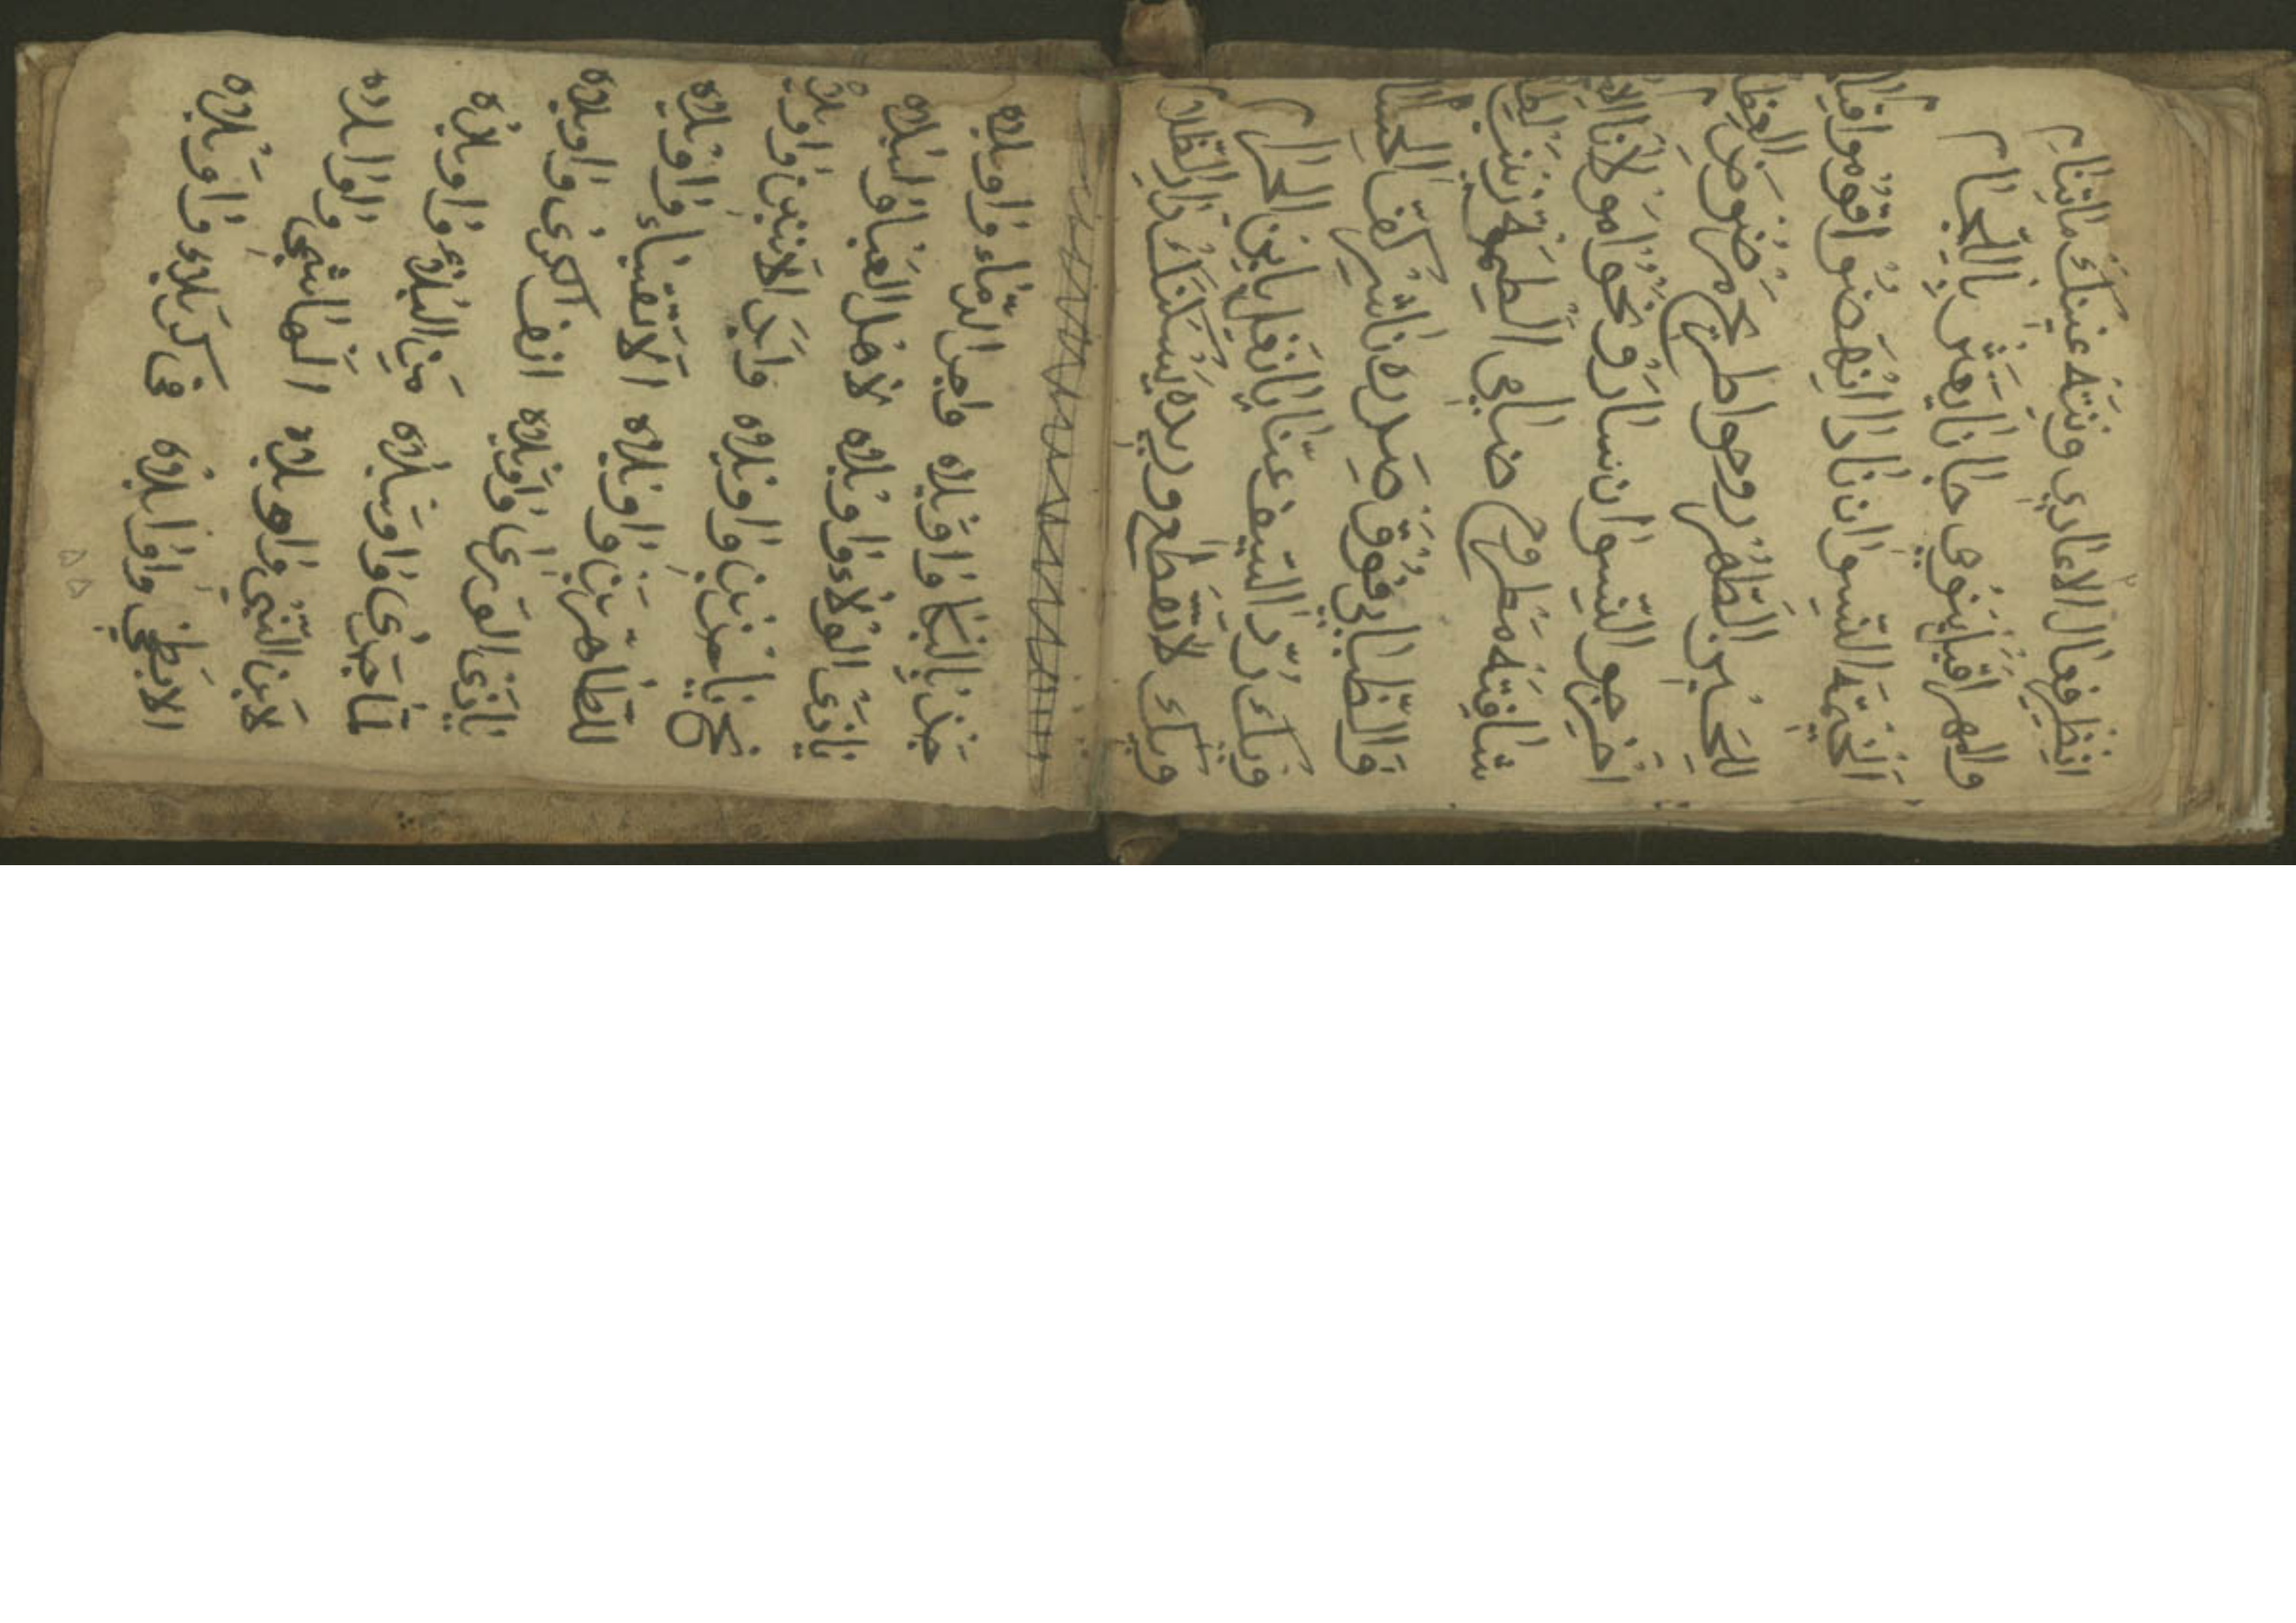 انظر فعال الاعادي ونته عينك ماتنام
والمهر اقبل ينوي خاليا يعثر باللجام
الخيمه النسوان نادا انهضوا قوموا قيام
للحسين الطهر روحوا اطريح مرضوض العظام
اخرجو النسوان سارو نحوا مولانا الامام
شافته مطروح ضامي زينب
فوق صدره ناشر كف الحسام
ونك رد السيف عنا يانغل يابن الحرام
ونك لاتقطع وريده يسكنك دار الظلام
بالبكا واويلاه واجر الدماء واويلاه
ياذوي الولاء واويلاه لاهل العبا واويلاه
نح يا حزين واويلاه وابد الانين واويلاه
للطاهرين واويلاه الاتقياء واويلاه
ياذي الورى واويلاه انف الكرى واويلاه
لما جرى واويلاه من البلاء واويلاه
لابن النبي واويلاه الهاشمي واويلاه
الابطحي واويلاه في كربلاء واويلاه